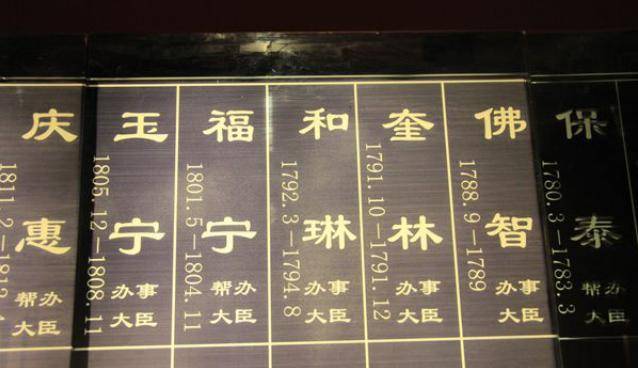 保泰
1780.3—1783.3
帮办
大臣
佛智
1788.9—1789
办事
大臣
奎林
1791.10—1791.12
办事
大臣
和琳
1792.3—1794.8
办事
大臣
福宁
1801.5—1804.11
帮办
大臣
玉宁
1805.12—1808.11
办事
大臣
庆惠
1811.2—
帮办
大臣